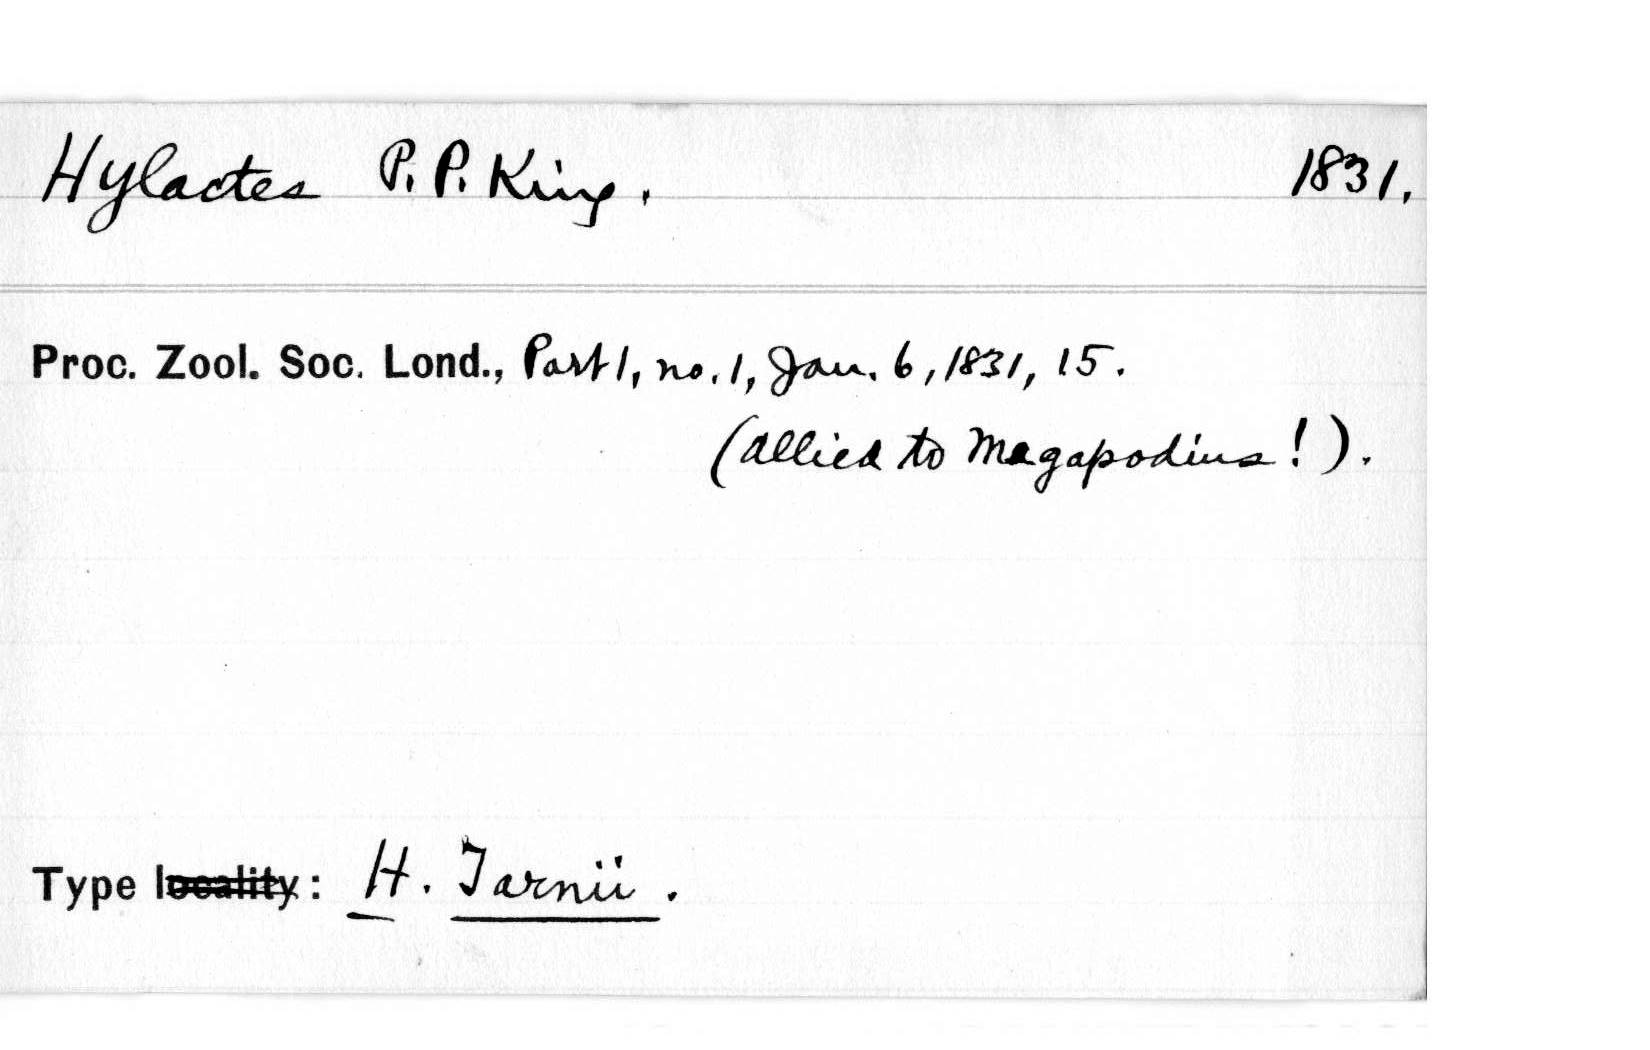 Hylactes P. P. King. 1831.
Proc. Zool. Soc. Lond., Part 1, no. 1, Jan. 6, 1831, 15.
(allied to Megapodius!).
Type locality: H. Tarnii.